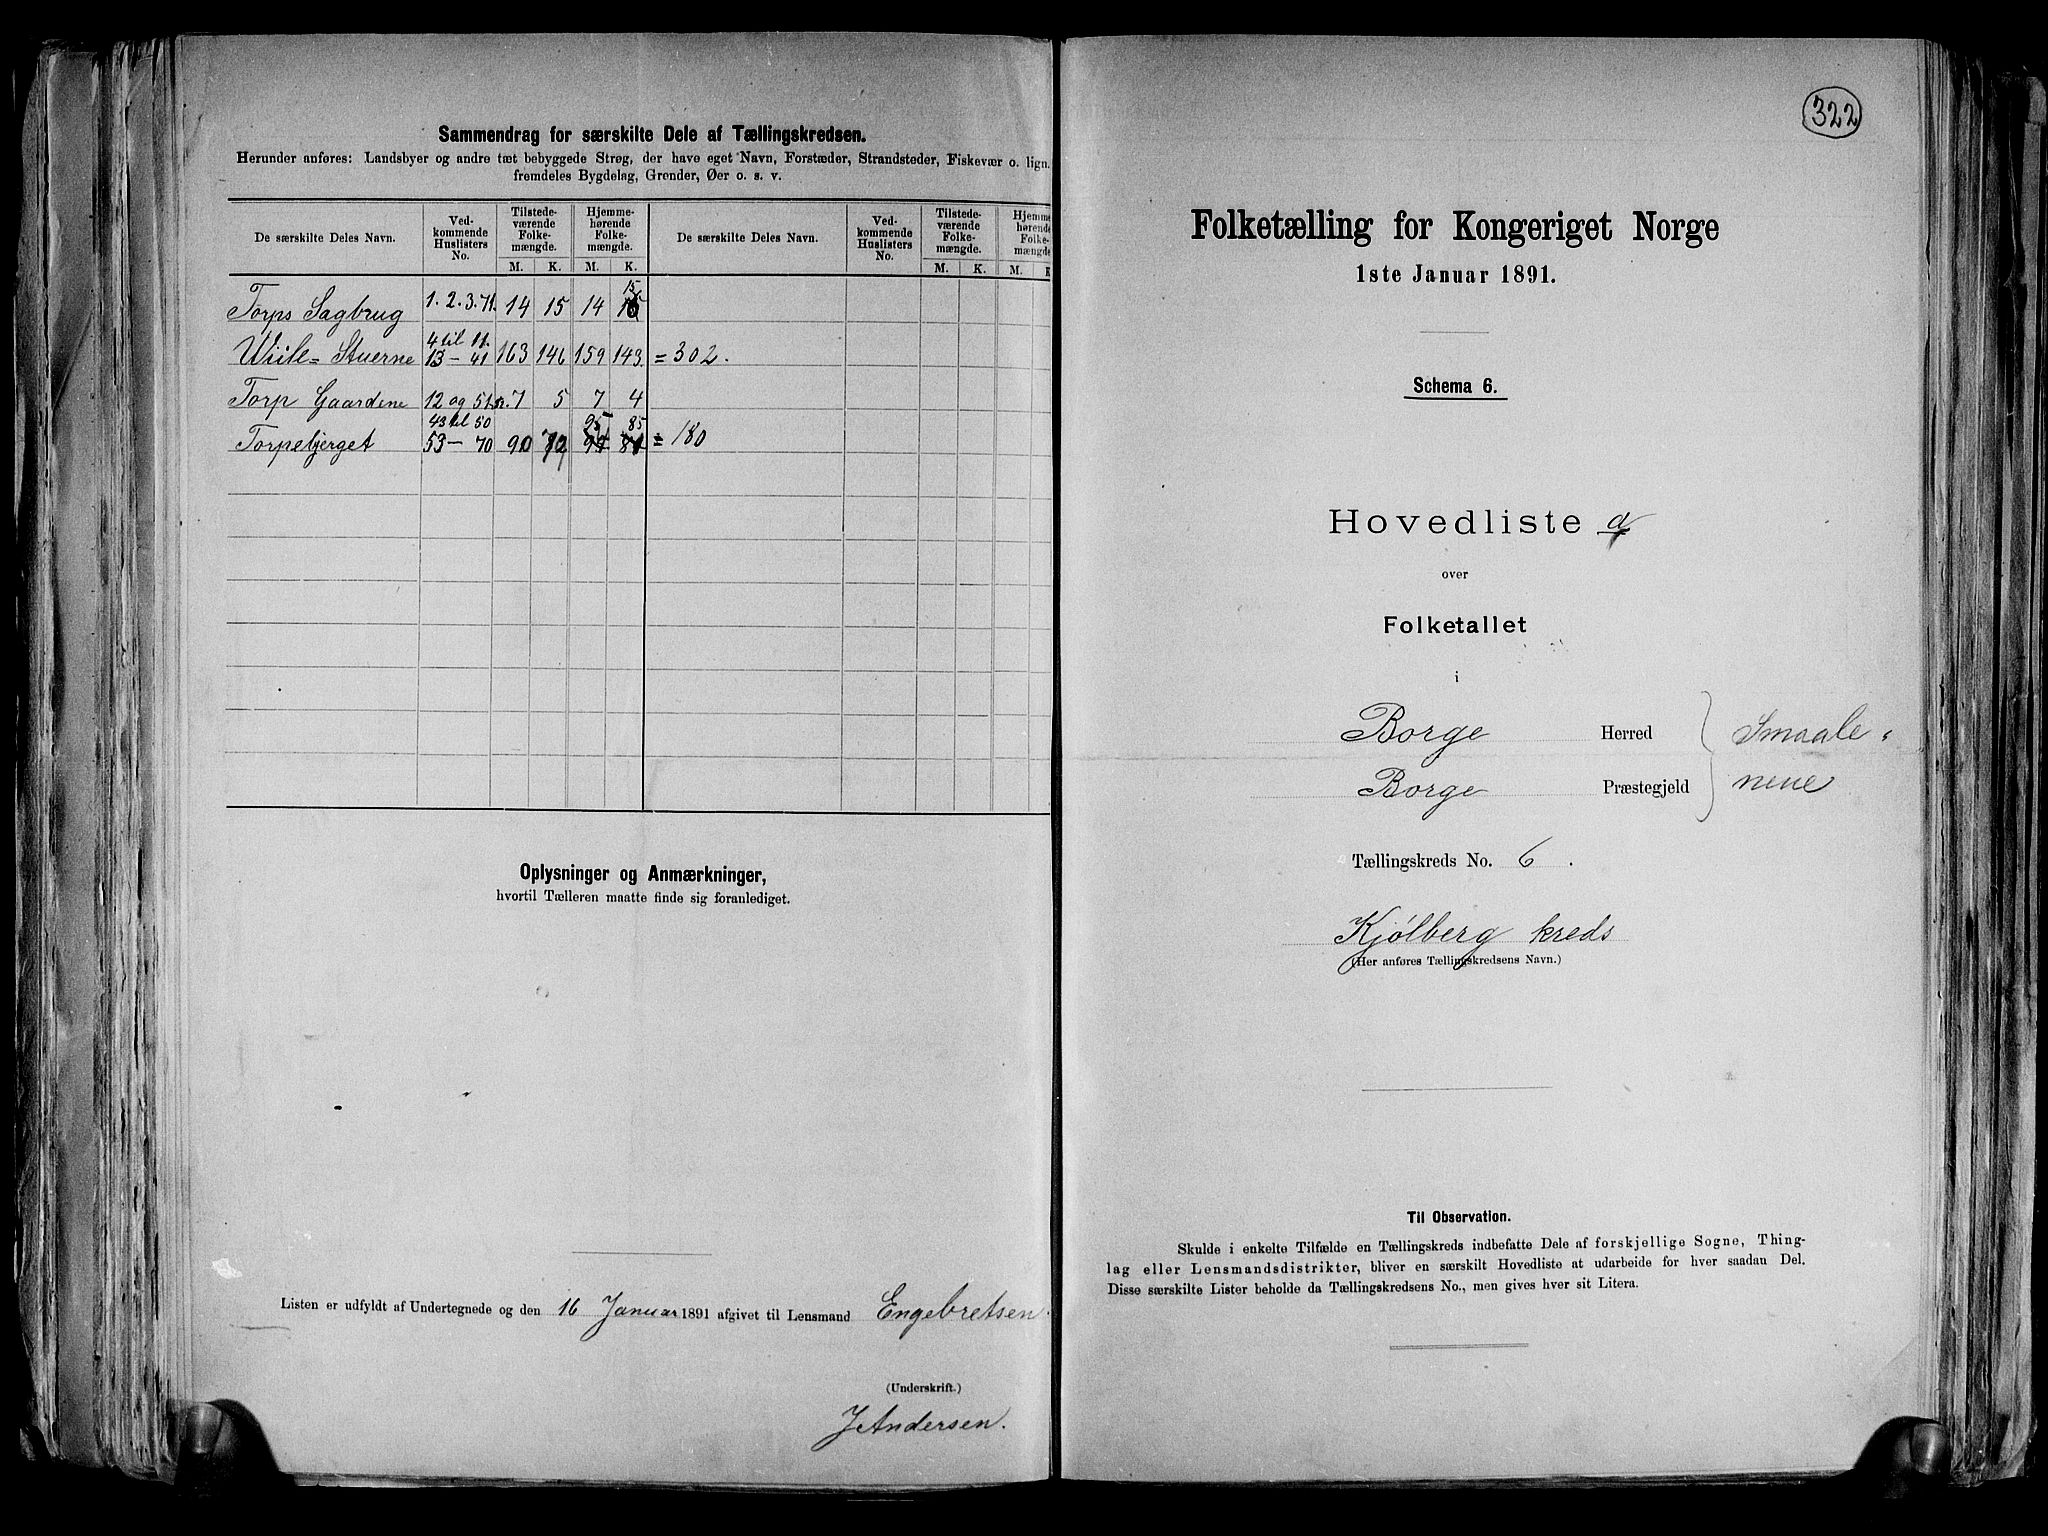 Sammendrag for særskilte Dele af Tællingskredsen.
Herunder anføres: Landsbyer og andre tæt bebyggede Strøg, der have eget Navn, Forstæder, Strandsteder, Fiskevær o. lign.
fremdeles Bygdelag, Grender, Øer o. s. v.
De særskilte Deles Navn. Ved-kommende Huslisters No. Tilstede-værende Folke-mængde. Hjemme-hørende Folke-mængde. De særskilte Deles Navn. Ved-kommende Huslisters No. Tilstede-værende Folke-mængde. Hjemme-hørende Folke-mængde
M. K. M. K. M. K. M. K
15
Torps Sagbrug 1. 2. 3. 71. 14 15 14
4 til 11.
Wiile=Stuerne 13 - 41 163 146 159 143. = 302.
Torp Gaardene 12 og 51. 7 5 7 4
43 til 50 95 85
Torpebjerget 53 - 70 90 = 180
Oplysninger og Anmærkninger,
hvortil Tælleren maatte finde sig foranlediget.
Listen er udfyldt af Undertegnede og den 16 Januar 1891 afgivet til Lensmand Engebretsen.
(Underskrift.)
J Andersen.
322
Folketælling for Kongeriget Norge
1ste Januar 1891.
Schema 6.
Hovedliste a
over
Folketallet
i
Borge Herred Smaale-
Borge Præstegjeld nene
Tællingskreds No. 6.
Kjølberg kreds
(Her anføres Tællingskredsens Navn.)
Til Observation.
Skulde i enkelte Tilfælde en Tællingskreds indbefatte Dele af forskjellige Sogne, Thing-
lag eller Lensmandsdistrikter, bliver en særskilt Hovedliste at udarbeide for hver saadan Del.
Disse særskilte Lister beholde da Tællingskredsens No., men gives hver sit Litera.